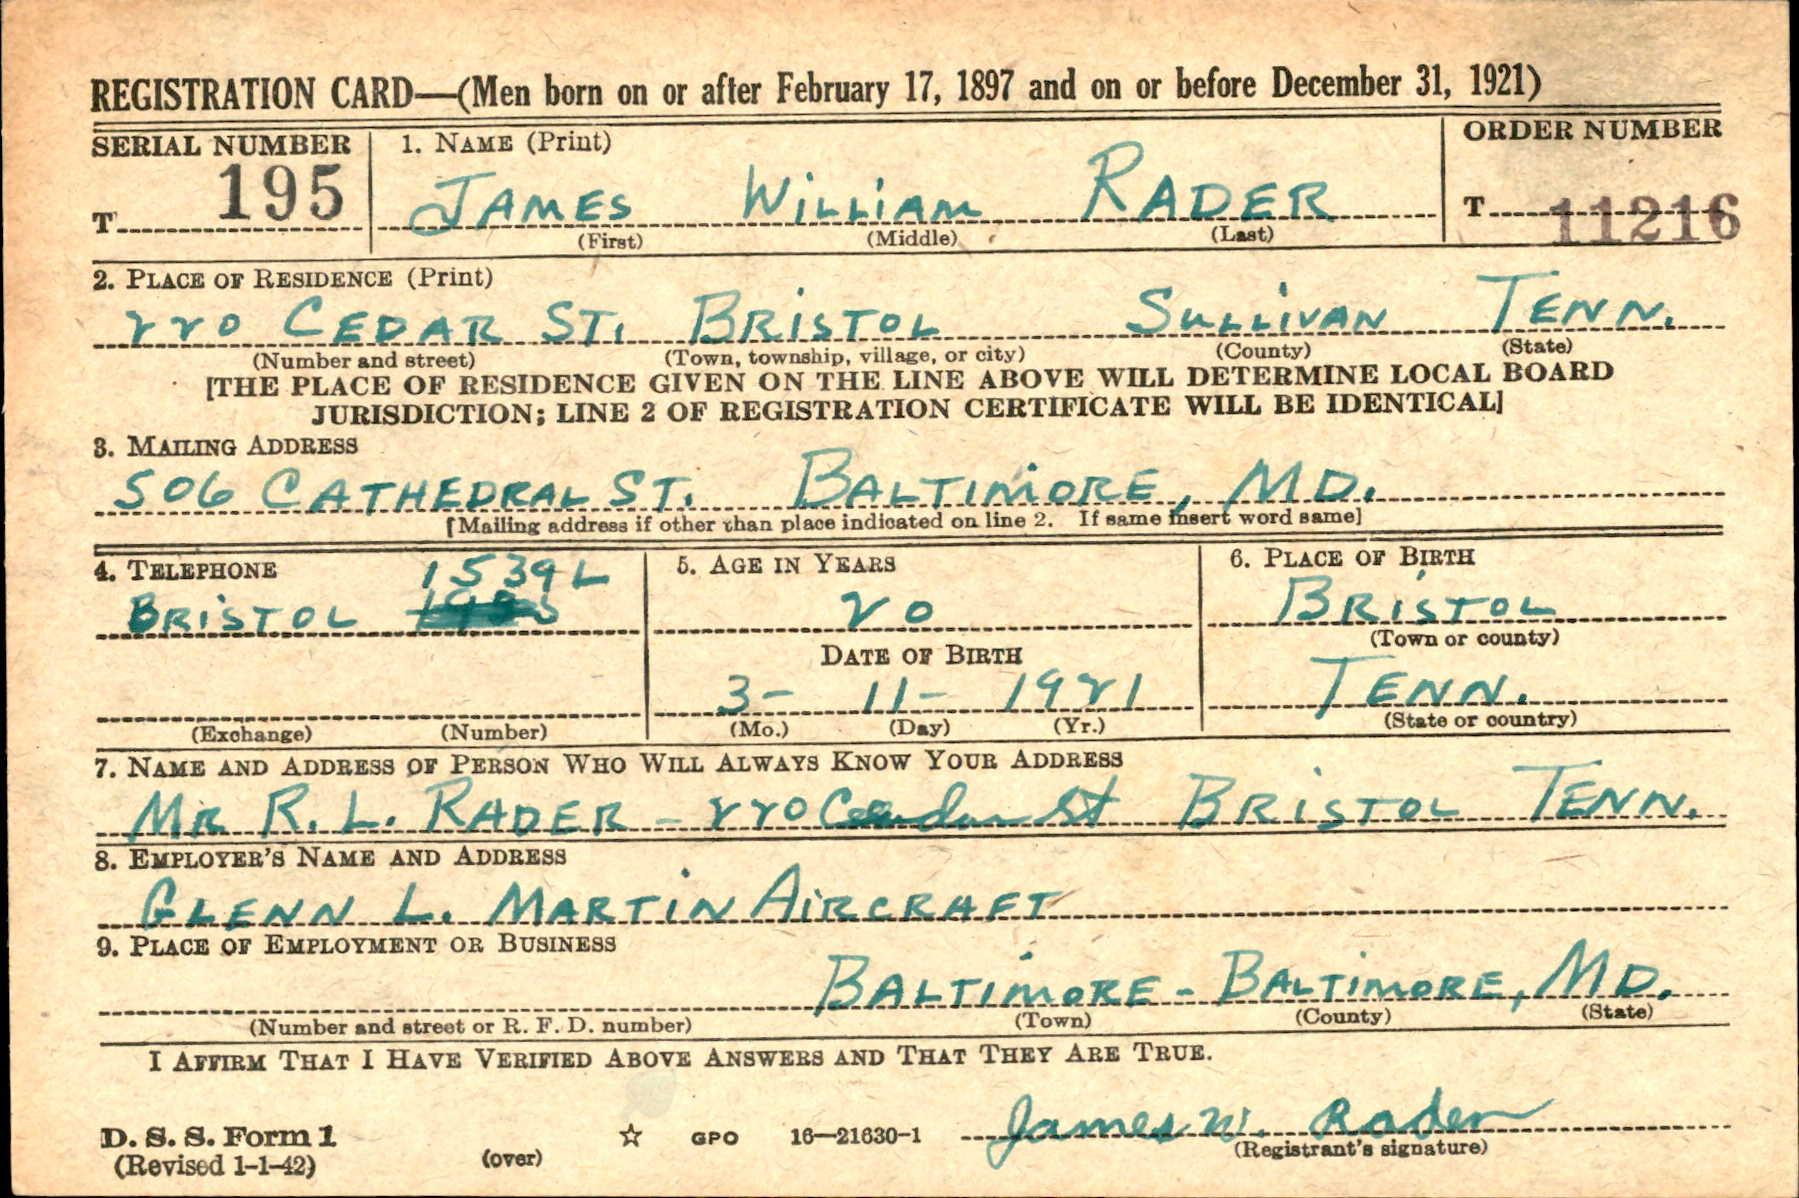 REGISTRATION CARD—(Men born on or after February 17, 1897 and on or before December 31, 1921)
SERIAL NUMBER 1. NAME (Print) ORDER NUMBER
T 195 JAMES WILLIAM RADER T 11216
(First) (Middle) (Last)
2. PLACE OF RESIDENCE (Print)
220 CEDAR ST. BRISTOL SULLIVAN TENN.
(Number and street) (Town, township, village, or city) (County) (State)
[THE PLACE OF RESIDENCE GIVEN ON THE LINE ABOVE WILL DETERMINE LOCAL BOARD
JURISDICTION; LINE 2 OF REGISTRATION CERTIFICATE WILL BE IDENTICAL]
3. MAILING ADDRESS
506 CATHEDRAL ST. BALTIMORE, MD.
[Mailing address if other than place indicated on line 2. If same insert word same]
4. TELEPHONE 1539L 5. AGE IN YEARS 6. PLACE OF BIRTH
BRISTOL 20 BRISTOL
(Town or county)
DATE OF BIRTH
3- 11- 1921 TENN.
(Exchange) (Number) (Mo.) (Day) (Yr.) (State or country)
7. NAME AND ADDRESS OF PERSON WHO WILL ALWAYS KNOW YOUR ADDRESS
MR R. L. RADER - 220 Cedar St BRISTOL TENN.
8. EMPLOYER'S NAME AND ADDRESS
GLENN L. MARTIN AIRCRAFT
9. PLACE OF EMPLOYMENT OR BUSINESS
BALTIMORE - BALTIMORE, MD.
(Number and street or R. F. D. number) (Town) (County) (State)
I AFFIRM THAT I HAVE VERIFIED ABOVE ANSWERS AND THAT THEY ARE TRUE.
James W. Rader
D. S. S. Form 1 ☆ GPO 16—21630-1 (Registrant's signature)
(Revised 1-1-42) (over)